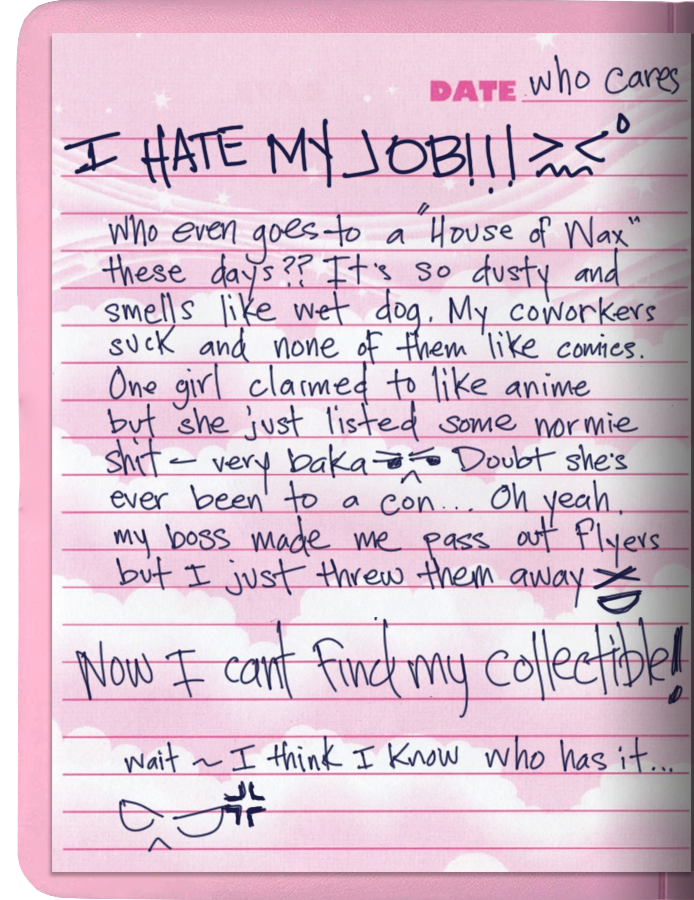 DATE who cares
I HATE MY JOB!!! >﹏<°
Who even goes to a "House of Wax"
these days?? It's so dusty and
smells like wet dog. My coworkers
suck and none of them like comics.
One girl claimed to like anime
but she just listed some normie
shit – very baka Doubt she's
ever been to a con... Oh yeah,
my boss made me pass out flyers
but I just threw them away XD
Now I cant find my collectible!
wait ~ I think I know who has it...